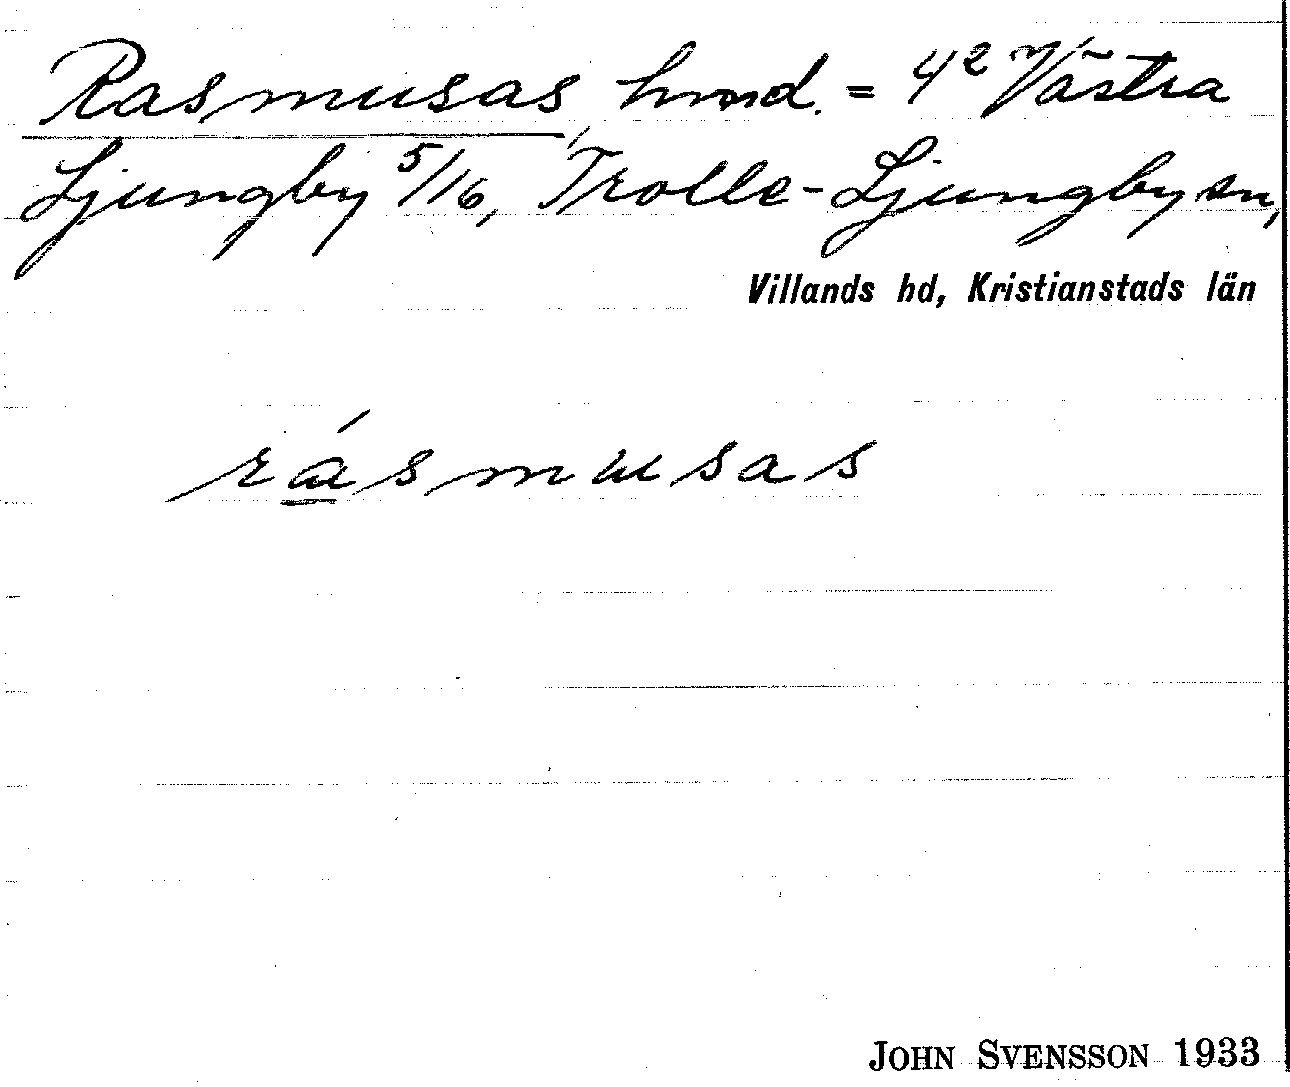 Rasmusas, hmd. = 4² Västra
Ljungby 5/16, Trolle-Ljungby sn,
Villands hd, Kristianstads län
rásmusas
JOHN SVENSSON 1933